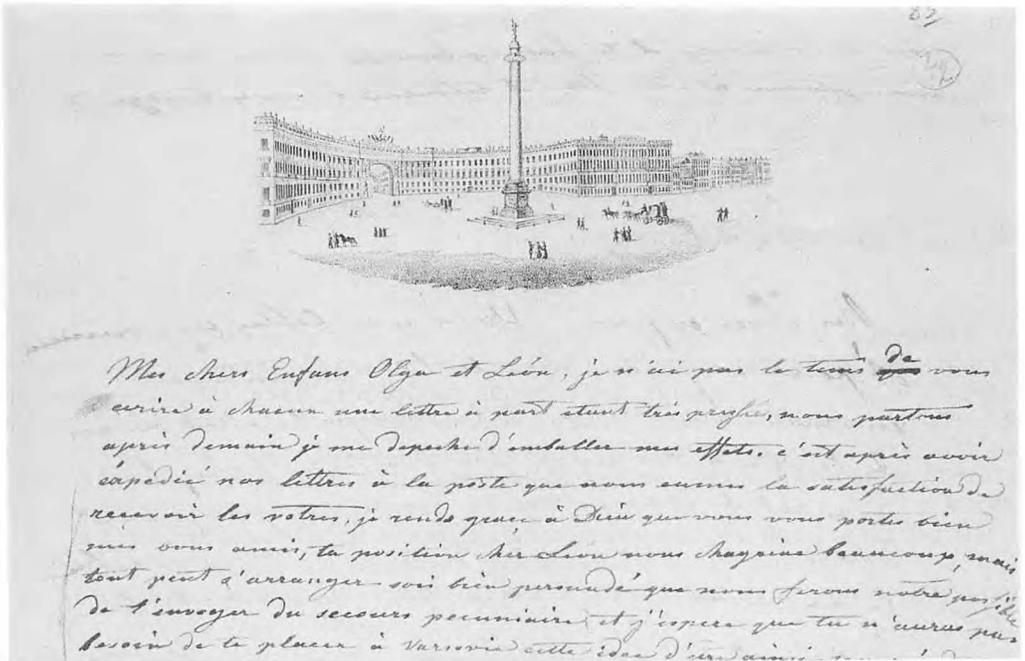 85
Mes chers Enfans Olga et Léon, je n'ai pas le tems de vous
ecrire à chacun une lettre à part etant très pressée, nous partons
après demain je me depeche d'emballer mes effets. c'est après avoir
éxpedié nos lettres à la poste que nous eumes la satisfaction de
recevoir les votres, je rends grace à Dieu que vous vous portes bien
mes bons amis, ta position cher Léon nous chagrine beaucoup, mais
tout peut s'arranger sois bien persuadé que nous ferons notre possible
de t'envoyer du secours pecuniaire et j'espere que tu n'auras pas
besoin de te placer à Varsovie cette idée d'être ainsi